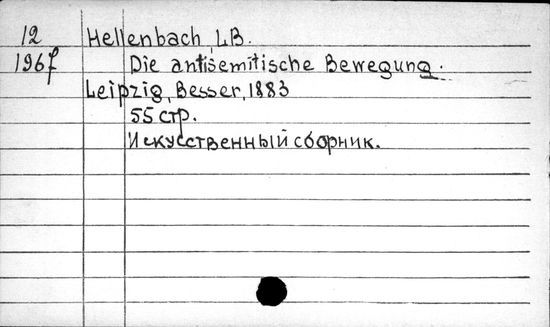 12 Hellenbach, L.B.
196f Die antisemitische Bewegung.
Leipzig, Besser, 1883
55 стр.
Искусственный сборник.